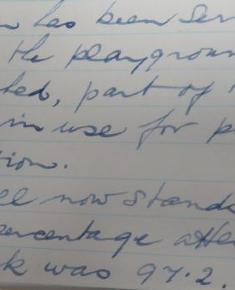 has been Ser
the playgroun
ted, part of
in use for p
tion.
now stands
percentage atte
k was 97.2.